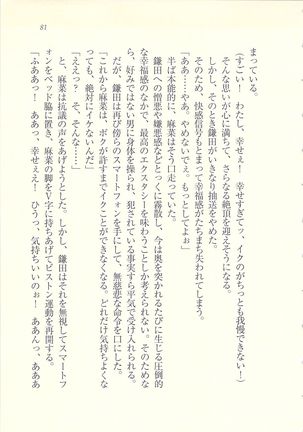 81
まっている。
（すごい！　わたし、幸せぇ！　幸せすぎてッ、イクのがちっとも我慢できない！）
そんな思いが心に満ちて、さらなる絶頂を迎えそうになる。
しかし、そのとき鎌田がいきなり抽送をやめた。
そのため、快感信号もとまって幸福感がたちまち失われてしまう。
「やぁ……やあ。やめないでぇ。もっとしてよぉ」
半ば本能的に、麻菜はそう口走っていた。
鎌田への憎悪や嫌悪感などとっくに霧散し、今は奥を突かれるたびに生じる圧倒的
な幸福感のなかで、最高のエクスタシーを味わうことしか考えられない。そのためな
ら、好みではない男に身体を操られ、犯されている事実すら平気で受け入れられる。
だが、鎌田は再び傍らのスマートフォンを手にして、無慈悲な命令を口にした。
「これから麻菜は、ボクが許すまでイクことができなくなる。どれだけ気持ちよくな
っても、絶対にイケないんだ」
「ええっ？　そ、そんな……」
と、麻菜は抗議の声をあげようとした。しかし、鎌田はそれを無視してスマートフ
ォンをベッド脇に置き、麻菜の脚をV字に持ちあげてピストン運動を再開する。
「ふああっ！　あああっ、幸せぇえ！　ひうっ、気持ちいいのぉ！　ああんっ、あああ